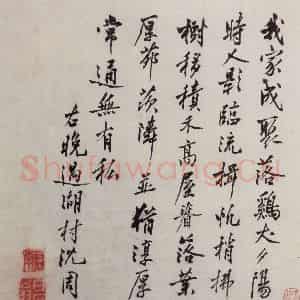 我家成聚落鷄犬夕陽
時人影臨流揖帆梢拂
樹移積禾高屋脊落葉
厚茆茨隣並猶淳厚
常通無有私
右晚過湖村沈周
Shufawang.CN